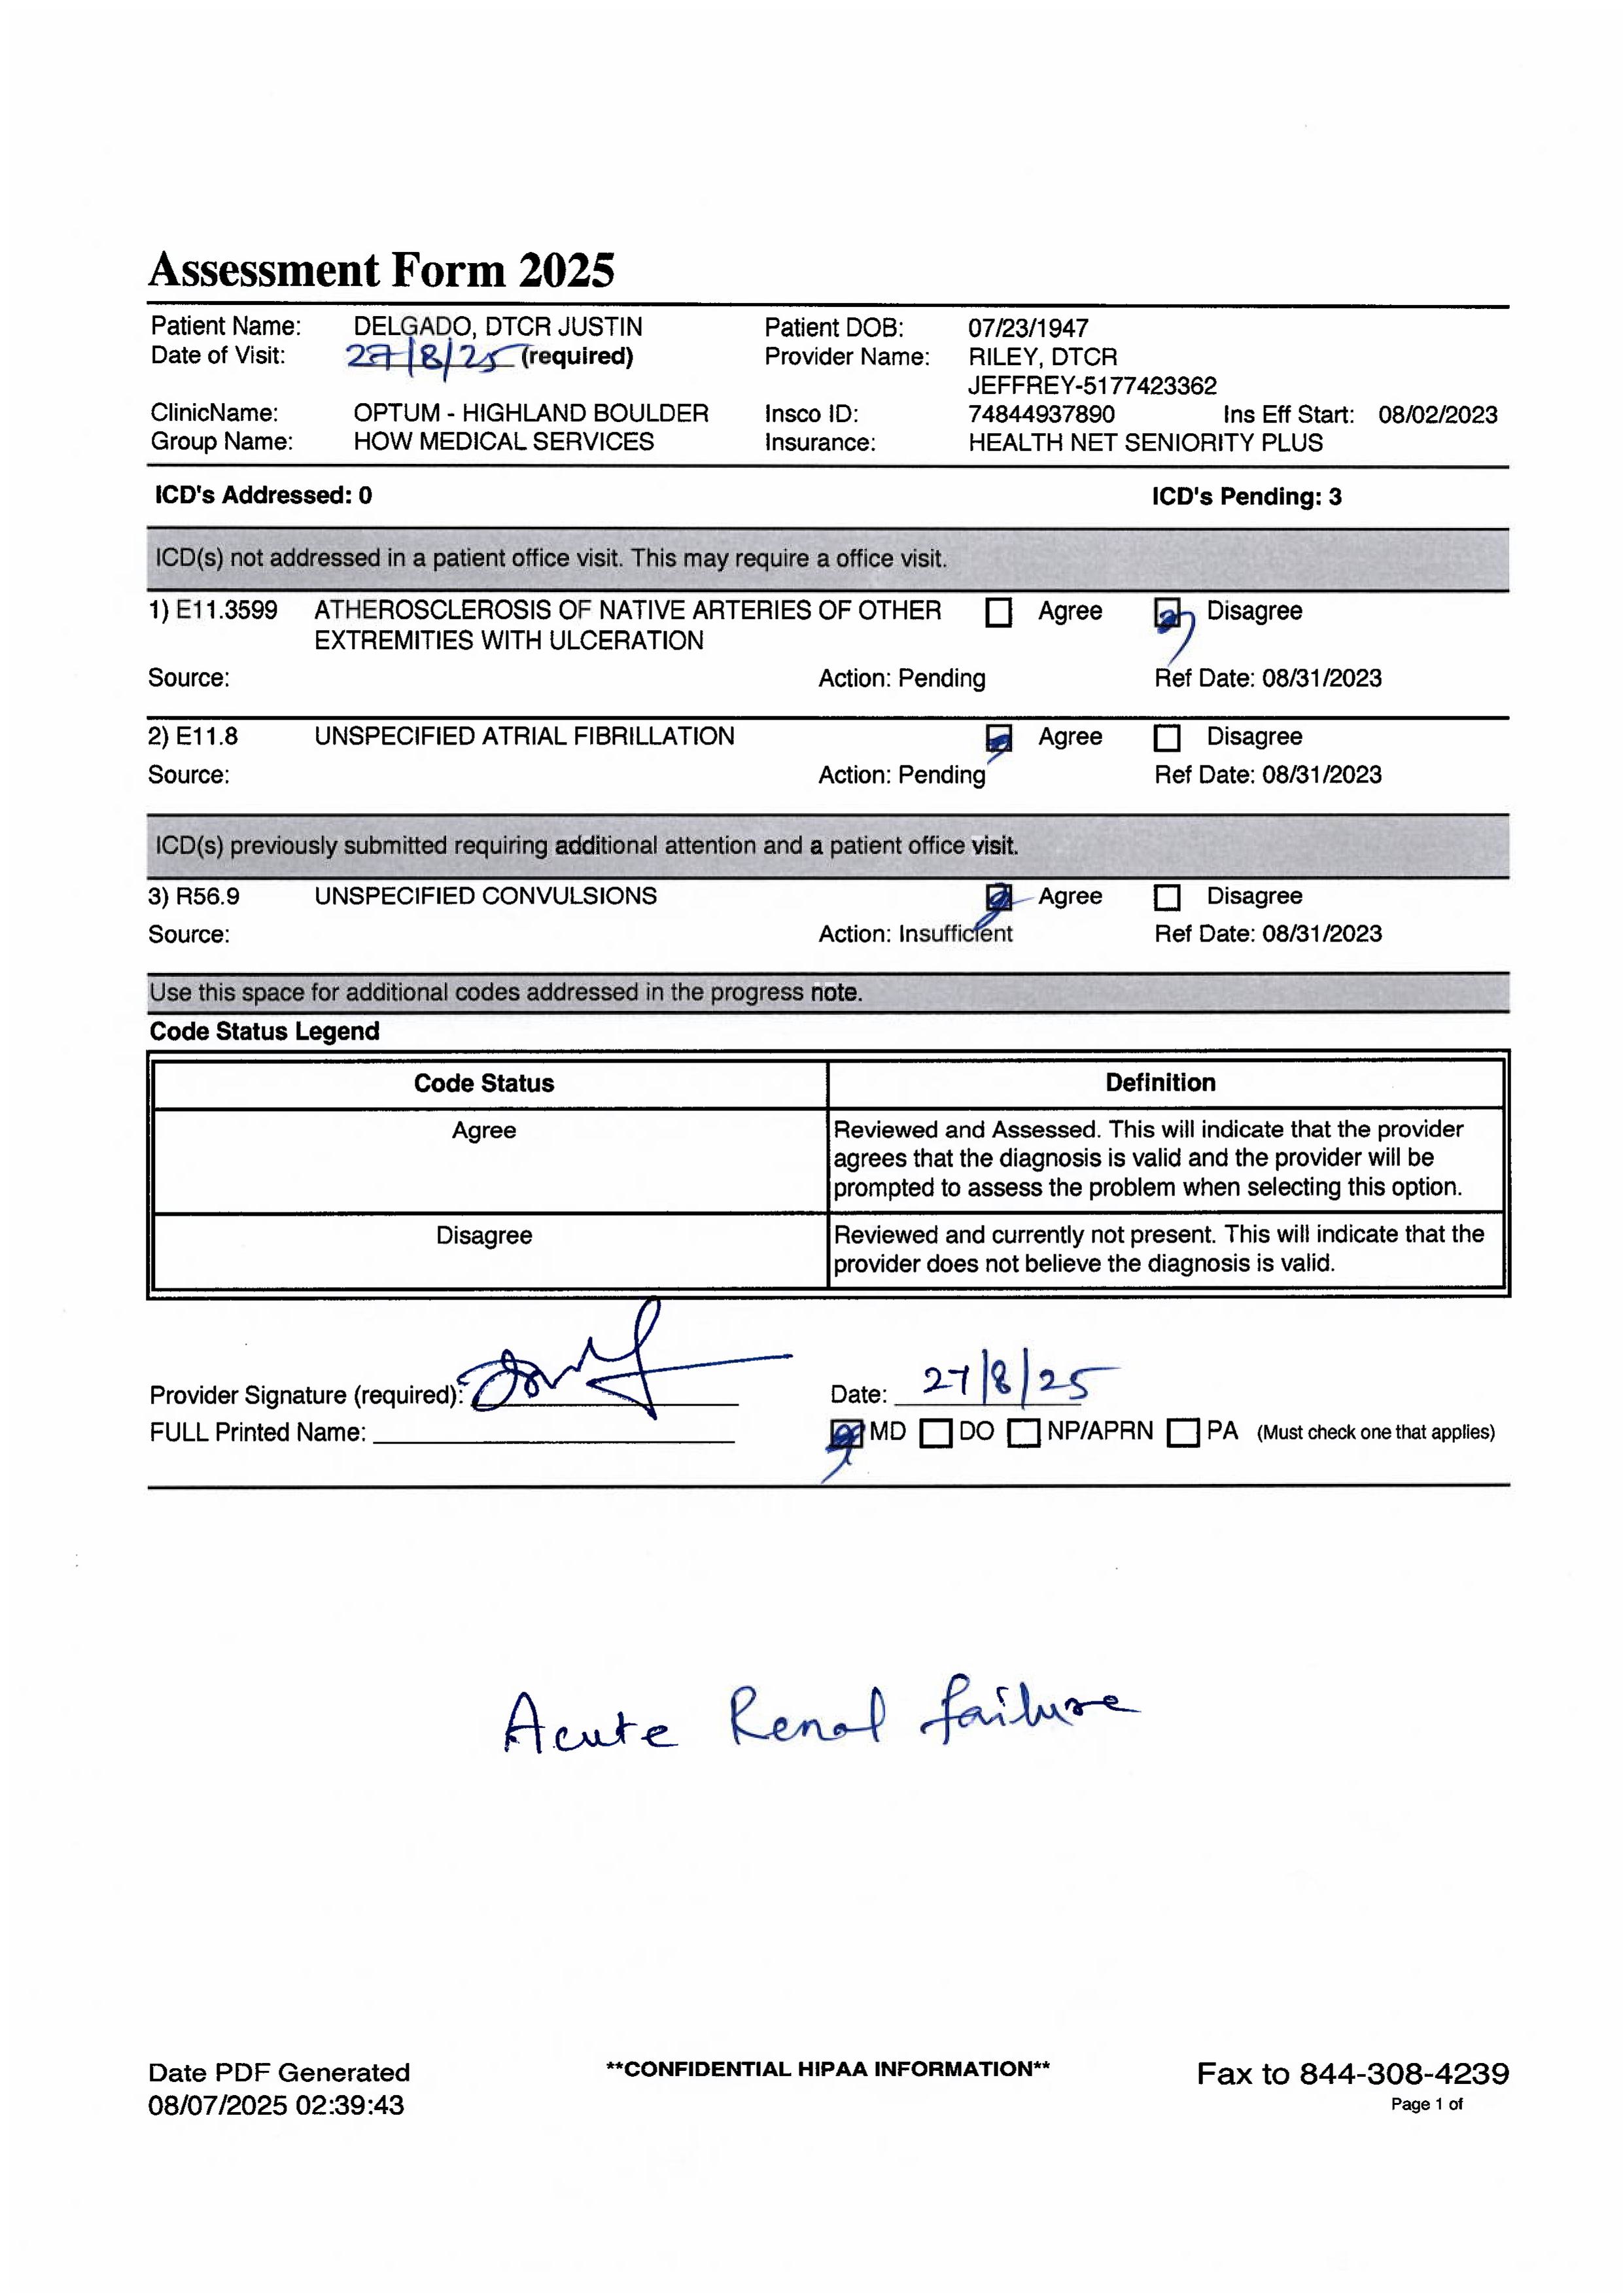 Assessment Form 2025
Patient Name: DELGADO, DTCR JUSTIN Patient DOB: 07/23/1947
Date of Visit: 27/8/25 (required) Provider Name: RILEY, DTCR
JEFFREY-5177423362
ClinicName: OPTUM - HIGHLAND BOULDER Insco ID: 74844937890 Ins Eff Start: 08/02/2023
Group Name: HOW MEDICAL SERVICES Insurance: HEALTH NET SENIORITY PLUS
ICD's Addressed: 0 ICD's Pending: 3
ICD(s) not addressed in a patient office visit. This may require a office visit.
1) E11.3599 ATHEROSCLEROSIS OF NATIVE ARTERIES OF OTHER Agree Disagree
EXTREMITIES WITH ULCERATION
Source: Action: Pending Ref Date: 08/31/2023
2) E11.8 UNSPECIFIED ATRIAL FIBRILLATION Agree Disagree
Source: Action: Pending Ref Date: 08/31/2023
ICD(s) previously submitted requiring additional attention and a patient office visit.
3) R56.9 UNSPECIFIED CONVULSIONS Agree Disagree
Source: Action: Insufficient Ref Date: 08/31/2023
Use this space for additional codes addressed in the progress note.
Code Status Legend
Code Status Definition
Agree Reviewed and Assessed. This will indicate that the provider
agrees that the diagnosis is valid and the provider will be
prompted to assess the problem when selecting this option.
Disagree Reviewed and currently not present. This will indicate that the
provider does not believe the diagnosis is valid.
Provider Signature (required): Date: 27/8/25
FULL Printed Name: MD DO NP/APRN PA (Must check one that applies)
Acute Renal failure
Date PDF Generated **CONFIDENTIAL HIPAA INFORMATION** Fax to 844-308-4239
08/07/2025 02:39:43 Page 1 of